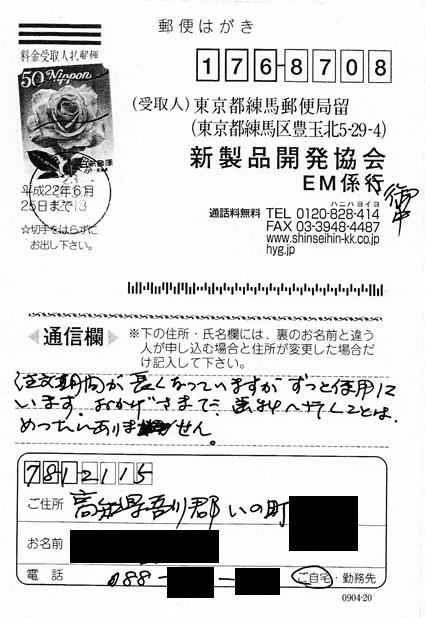 郵便はがき
料金受取人払郵便
50 Nippon
平成22年6月
25日まで
☆切手をはらずに
お出し下さい。
1768708
(受取人) 東京都練馬郵便局留
(東京都練馬区豊玉北5-29-4)
新製品開発協会
EM係行
御中
ハニハヨイヨ
通話料無料 TEL 0120-828-414
FAX 03-3948-4487
www.shinseihin-kk.co.jp
hyg.jp
通信欄
※下の住所・氏名欄には、裏のお名前と違う
人が申し込む場合と住所が変更した場合だ
け記入して下さい。
注文期間が長くなっていますがずっと使用して
います。おかげさまで、歯科へ行くことは、
めったにありません。
7812115
ご住所 高知県吾川郡いの町
お名前
電話 088- - ご自宅・勤務先
0904-20